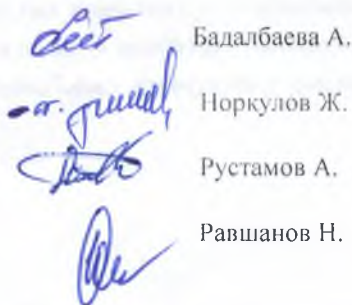 Бадалбаева А.
Норкулов Ж.
Рустамов А.
Равшанов Н.